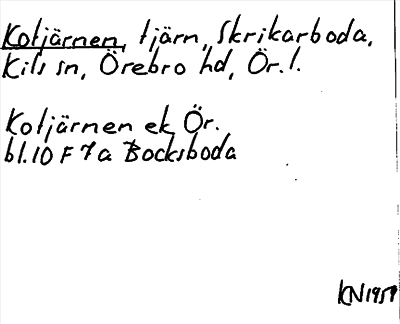 Kotjärnen, tjärn, Skrikarboda,
Kils sn, Örebro hd, Ör.l.
Kotjärnen ek Ör.
bl.10 F 7a Bocksboda
KN1959